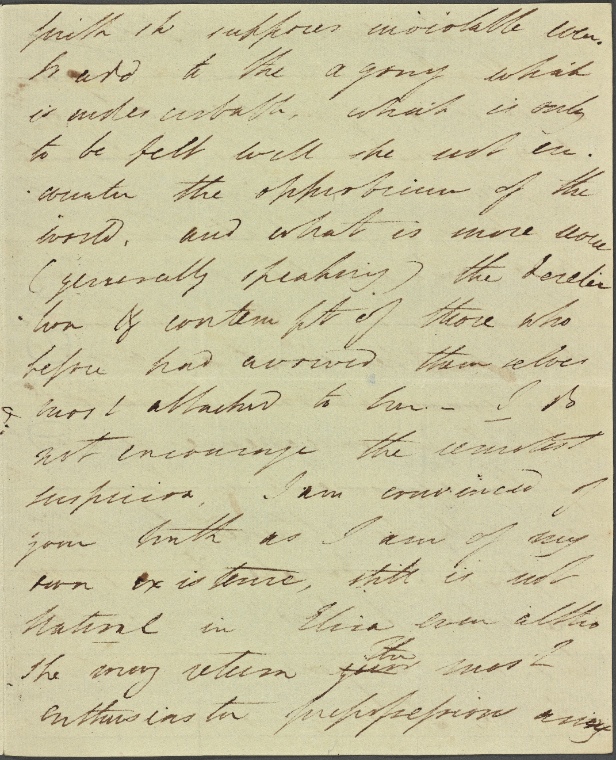 faith she supposes inviolable were
to add to the agony which
is undescribable, which is only
to be felt will she not en-
counter the opprobrium of the
world, and what is more worse
(generally speaking) the derelic
tion & contempt of those who
before had avowed themselves
most attached to her.— I do
not encourage the remotest
suspicion, I am convinced of
your truth as I am of my
own existence, still is not
natural in Eliza even altho
she may return the most
enthusiastic prepossession arising